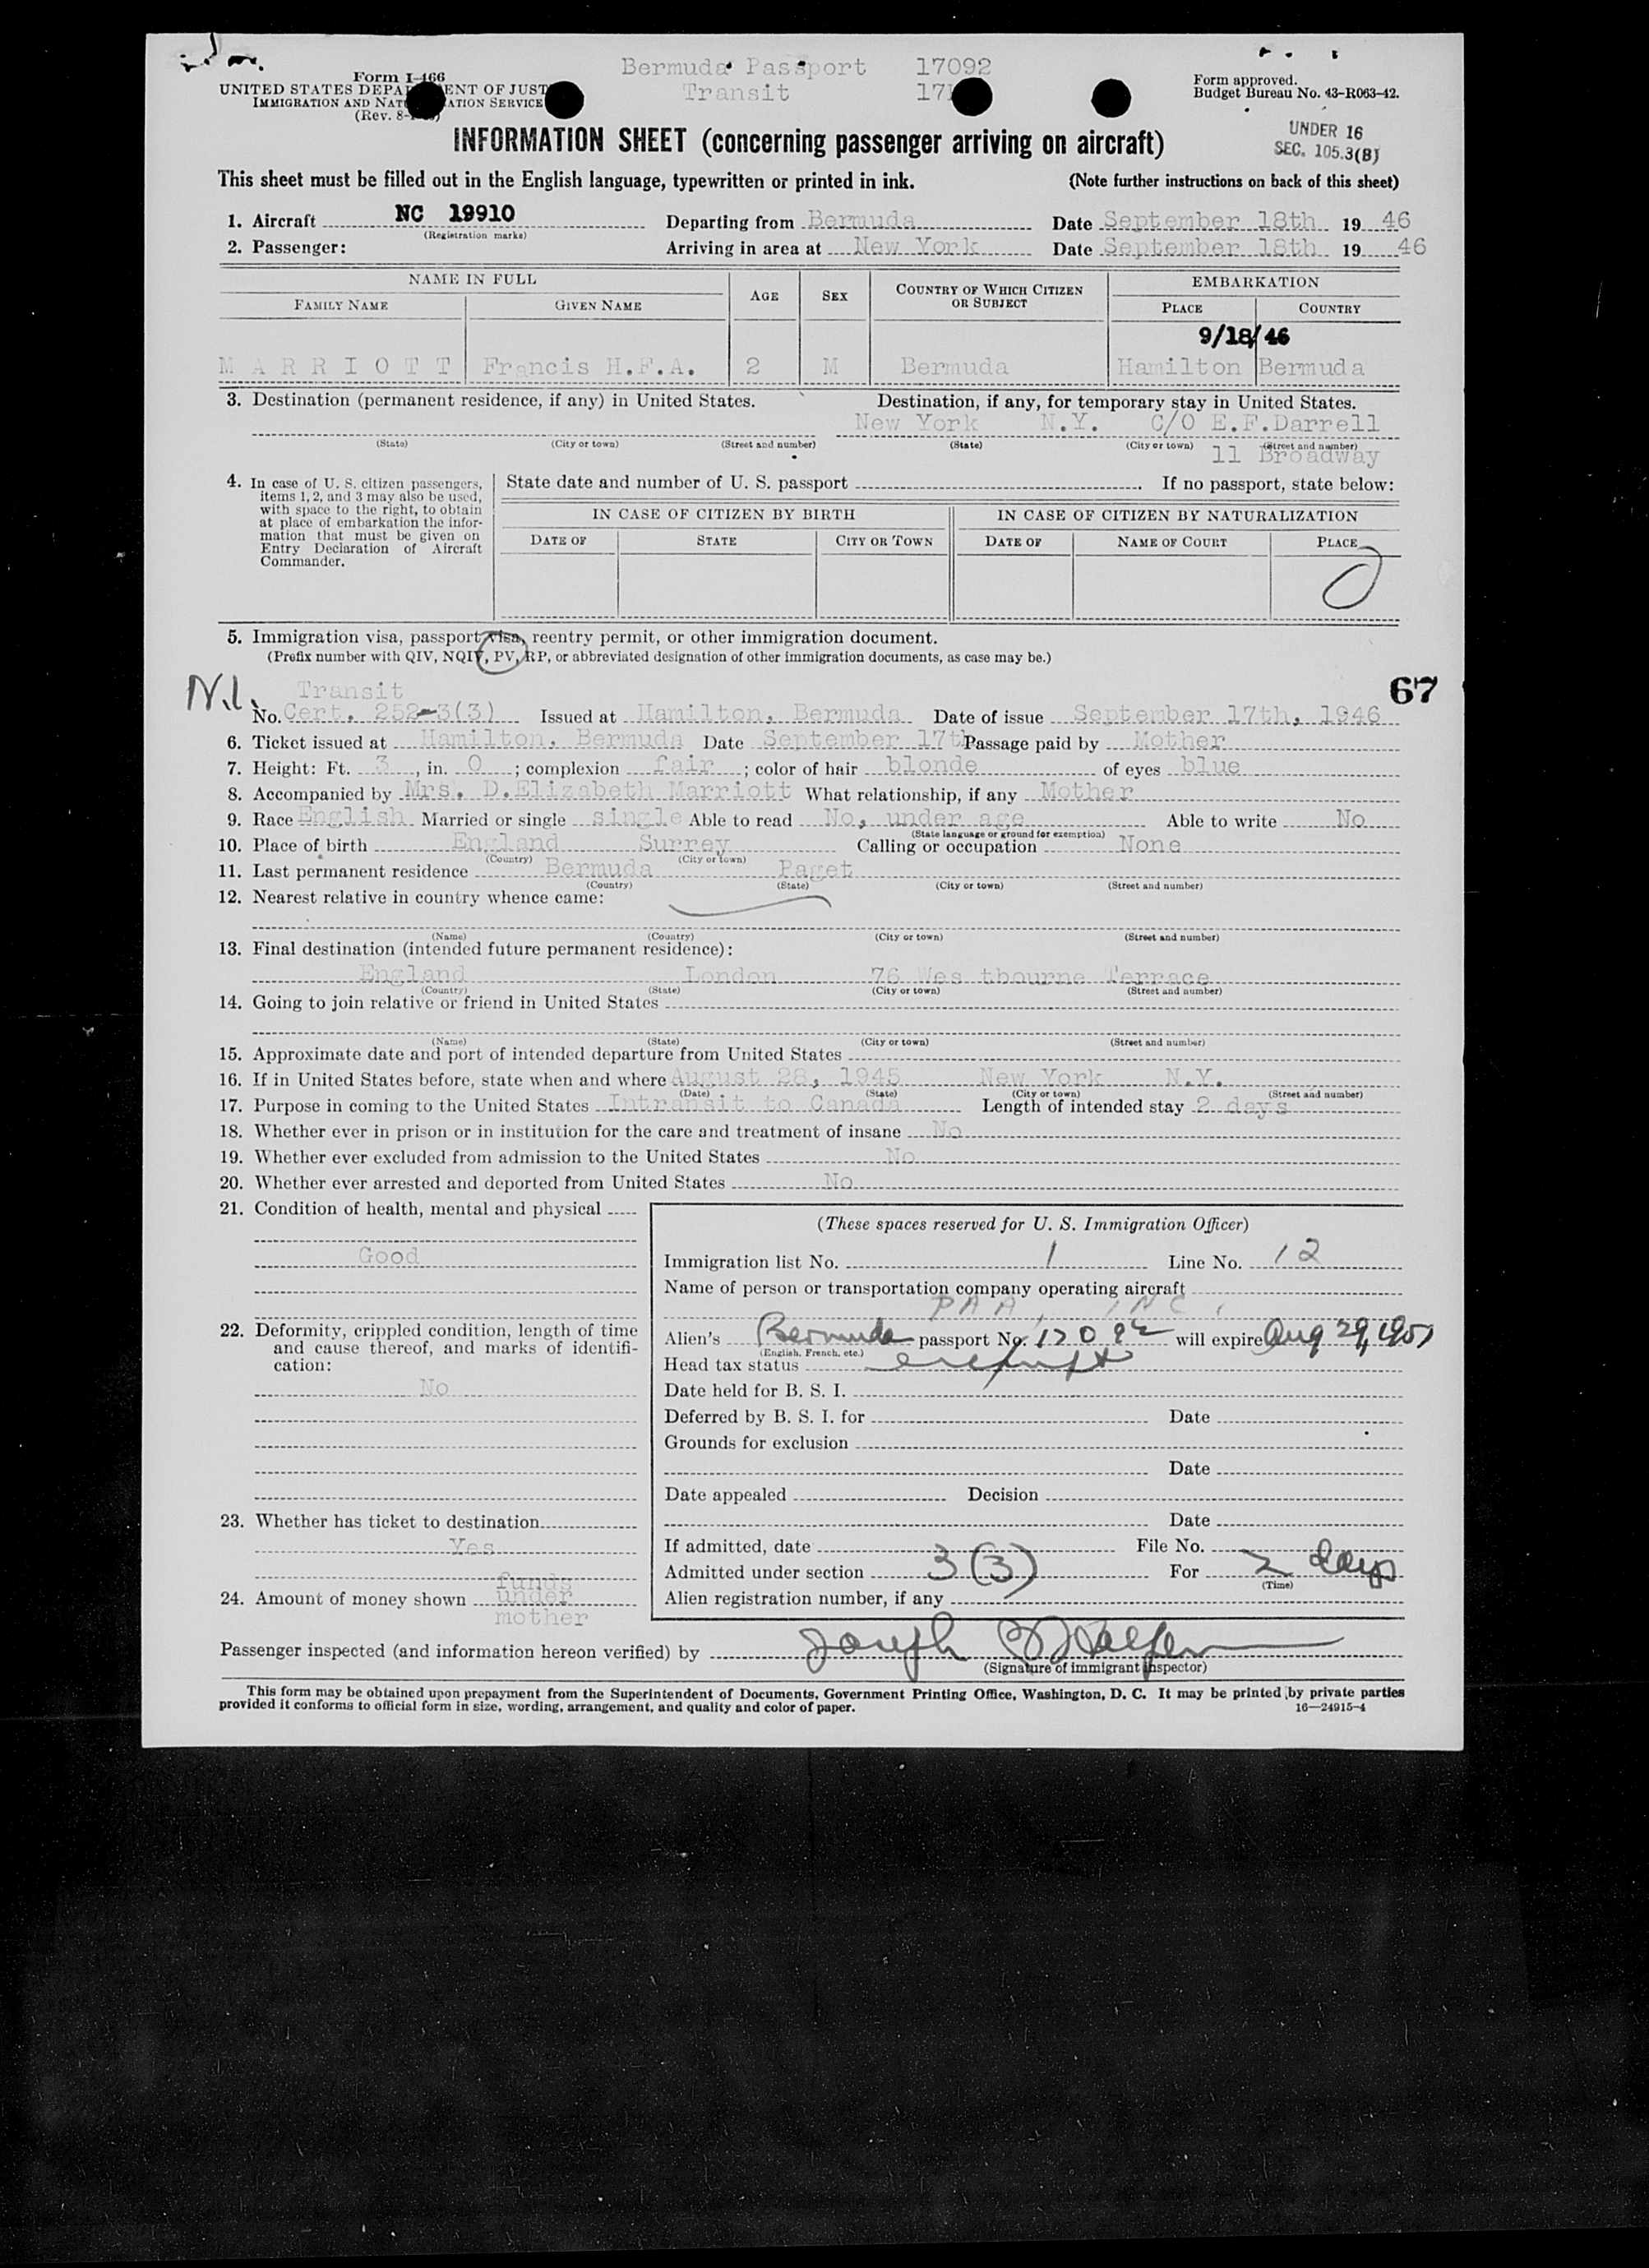 Form I-466
UNITED STATES DEPARTMENT OF JUSTICE
IMMIGRATION AND NATURALIZATION SERVICE
(Rev. 8-
Bermuda Passport 17092
Transit 17
Form approved.
Budget Bureau No. 43-R063-42.
UNDER 16
SEC. 105.3(B)
INFORMATION SHEET (concerning passenger arriving on aircraft)
This sheet must be filled out in the English language, typewritten or printed in ink. (Note further instructions on back of this sheet)
1. Aircraft NC 19910 Departing from Bermuda Date September 18th 19 46
(Registration marks)
2. Passenger: Arriving in area at New York Date September 18th 19 46
NAME IN FULL AGE SEX COUNTRY OF WHICH CITIZEN OR SUBJECT EMBARKATION
FAMILY NAME GIVEN NAME PLACE COUNTRY
9/18/46
MARRIOTT Francis H.F.A. 2 M Bermuda Hamilton Bermuda
3. Destination (permanent residence, if any) in United States. Destination, if any, for temporary stay in United States.
New York N.Y. C/O E.F.Darrell
(State) (City or town) (Street and number) (State) (City or town) (Street and number)
11 Broadway
4. In case of U. S. citizen passengers, items 1, 2, and 3 may also be used, with space to the right, to obtain at place of embarkation the information that must be given on Entry Declaration of Aircraft Commander.
State date and number of U. S. passport If no passport, state below:
IN CASE OF CITIZEN BY BIRTH IN CASE OF CITIZEN BY NATURALIZATION
DATE OF STATE CITY OR TOWN DATE OF NAME OF COURT PLACE
5. Immigration visa, passport visa, reentry permit, or other immigration document.
(Prefix number with QIV, NQIV, PV, RP, or abbreviated designation of other immigration documents, as case may be.)
N.I. Transit 67
No. Cert. 252-3(3) Issued at Hamilton, Bermuda Date of issue September 17th, 1946
6. Ticket issued at Hamilton, Bermuda Date September 17th Passage paid by Mother
7. Height: Ft. 3, in. 0; complexion fair; color of hair blonde of eyes blue
8. Accompanied by Mrs. D.Elizabeth Marriott What relationship, if any Mother
9. Race English Married or single single Able to read No, under age Able to write No
(State language or ground for exemption)
10. Place of birth England Surrey Calling or occupation None
(Country) (City or town)
11. Last permanent residence Bermuda Paget
(Country) (State) (City or town) (Street and number)
12. Nearest relative in country whence came:
(Name) (Country) (City or town) (Street and number)
13. Final destination (intended future permanent residence):
England London 76 Wes tbourne Terrace
(Country) (State) (City or town) (Street and number)
14. Going to join relative or friend in United States
(Name) (State) (City or town) (Street and number)
15. Approximate date and port of intended departure from United States
16. If in United States before, state when and where August 28, 1945 New York N.Y.
(Date) (State) (City or town) (Street and number)
17. Purpose in coming to the United States Intransit to Canada Length of intended stay 2 days
18. Whether ever in prison or in institution for the care and treatment of insane No
19. Whether ever excluded from admission to the United States No
20. Whether ever arrested and deported from United States No
21. Condition of health, mental and physical
Good
22. Deformity, crippled condition, length of time and cause thereof, and marks of identification:
No
23. Whether has ticket to destination
Yes
24. Amount of money shown funds under mother
(These spaces reserved for U. S. Immigration Officer)
Immigration list No. 1 Line No. 12
Name of person or transportation company operating aircraft
PAA, INC.
Alien's Bermuda passport No. 17092 will expire Aug 29, 1951
(English, French, etc.)
Head tax status exempt
Date held for B. S. I.
Deferred by B. S. I. for Date
Grounds for exclusion
Date
Date appealed Decision
Date
If admitted, date File No.
Admitted under section 3(3) For 2 days
(Time)
Alien registration number, if any
Passenger inspected (and information hereon verified) by Joseph
(Signature of immigrant inspector)
This form may be obtained upon prepayment from the Superintendent of Documents, Government Printing Office, Washington, D. C. It may be printed by private parties
provided it conforms to official form in size, wording, arrangement, and quality and color of paper. 16—24915-4